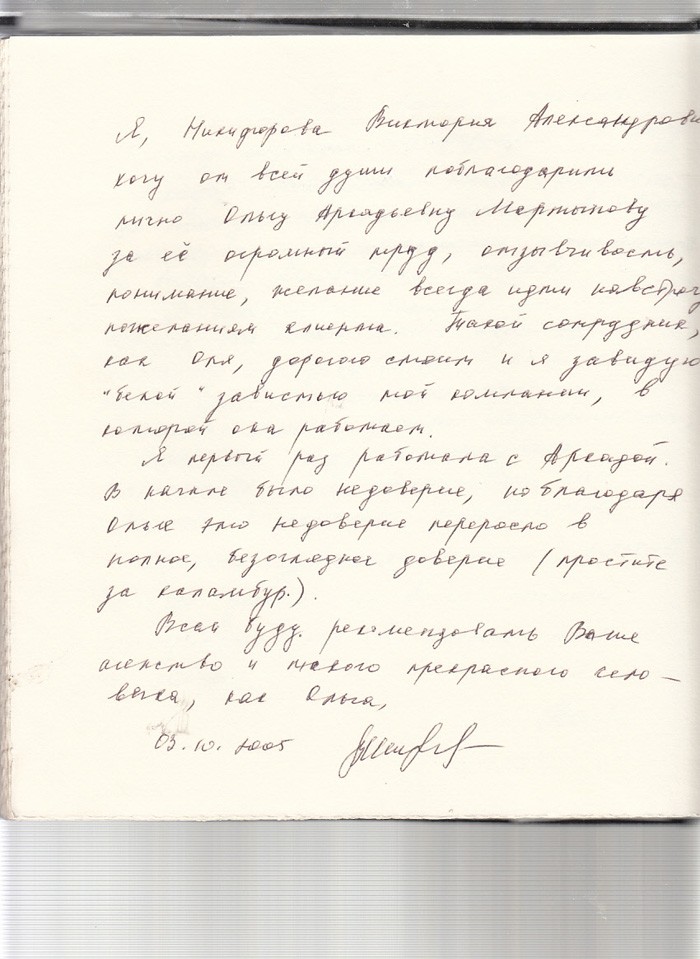 Я, Никифорова Виктория Александровна
хочу от всей души поблагодарить
лично Ольгу Аркадьевну Мартынову
за её огромный труд, отзывчивость,
понимание, желание всегда идти навстречу
пожеланиям клиента. Такой сотрудник,
как Оля, дорогого стоит и я завидую
"белой" завистью той компании, в
которой она работает.
Я первый раз работала с Аркадой.
В начале было недоверие, но благодаря
Ольге это недоверие переросло в
полное, безоглядное доверие (простите
за каламбур.).
Всем буду рекомендовать Ваше
агенство и такого прекрасного чело-
века, как Ольга,
03.10.2005